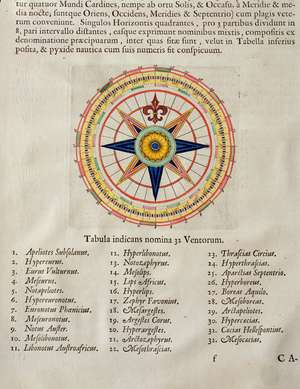 tur quatuor Mundi Cardines, nempe ab ortu Solis, & Occasu, à Meridie & me-
dia nocte, suntque Oriens, Occidens, Meridies & Septentrio) cum plagis vete-
rum conveniunt. Singulos Horizontis quadrantes, pro 3 partibus dividunt in
8, pari intervallo distantes, easque exprimunt nominibus mixtis, compositis ex
denominatione præcipuarum, inter quas sitæ sunt, velut in Tabella inferius
posita, & pyxide nautica cum suis numeris sit conspicuum.
Tabula indicans nomina 32 Ventorum.
1. Apeliotes Subsolanus.
2. Hypereurus.
3. Eurus Vulturnus.
4. Meseurus.
5. Notapeliotes.
6. Hypereuronotus.
7. Euronotus Phœnicius.
8. Meseuronotus.
9. Notus Auster.
10. Mesolibonotus.
11. Libonotus Austroafricus.
12. Hyperlibonotus.
13. Notozephyrus.
14. Mesolips.
15. Lips Africus.
16. Hyperlips.
17. Zephyrus Favonius.
18. Mesargestes.
19. Argestes Corus.
20. Hyperargestes.
21. Arctozephyrus.
22. Mesothrascias.
23. Thrascias Circius.
24. Hyperthrascias.
25. Aparctias Septentrio.
26. Hyperboreus.
27. Boreas Aquilo.
28. Mesoboreas.
29. Arctapeliotes.
30. Hypercæcias.
31. Cæcias Hellespontius.
32. Mesocæcias.
f C A-